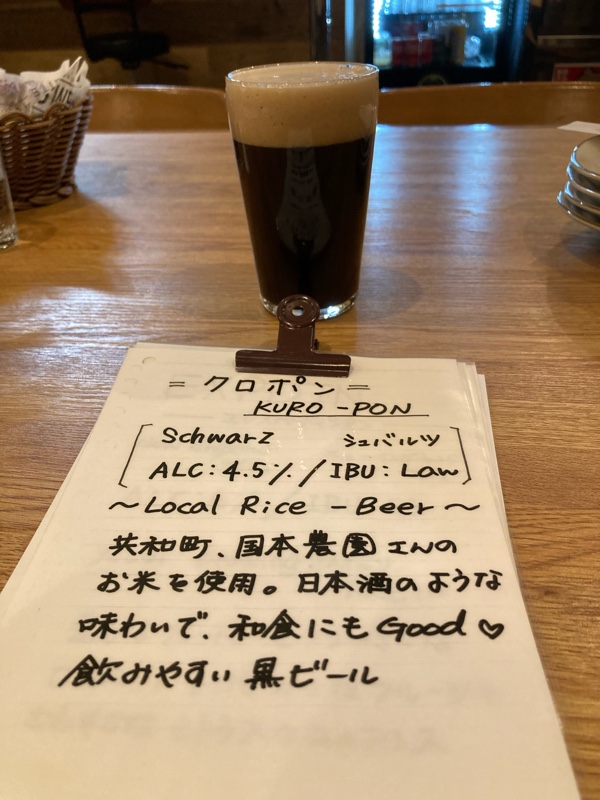 = クロポン =
KURO-PON
Schwarz シュバルツ
ALC:4.5%/IBU:Law
~Local Rice-Beer~
共和町、国本農園さんの
お米を使用。日本酒のような
味わいで、和食にもGood♡
飲みやすい黒ビール